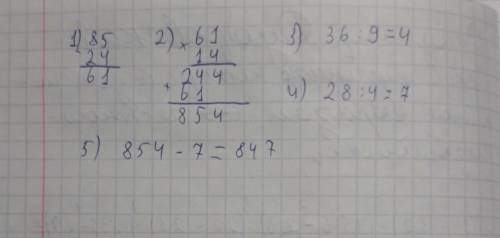 1) 85
24
61
2) × 61
14
244
+ 61
854
3) 36 : 9 = 4
4) 28 : 4 = 7
5) 854 - 7 = 847